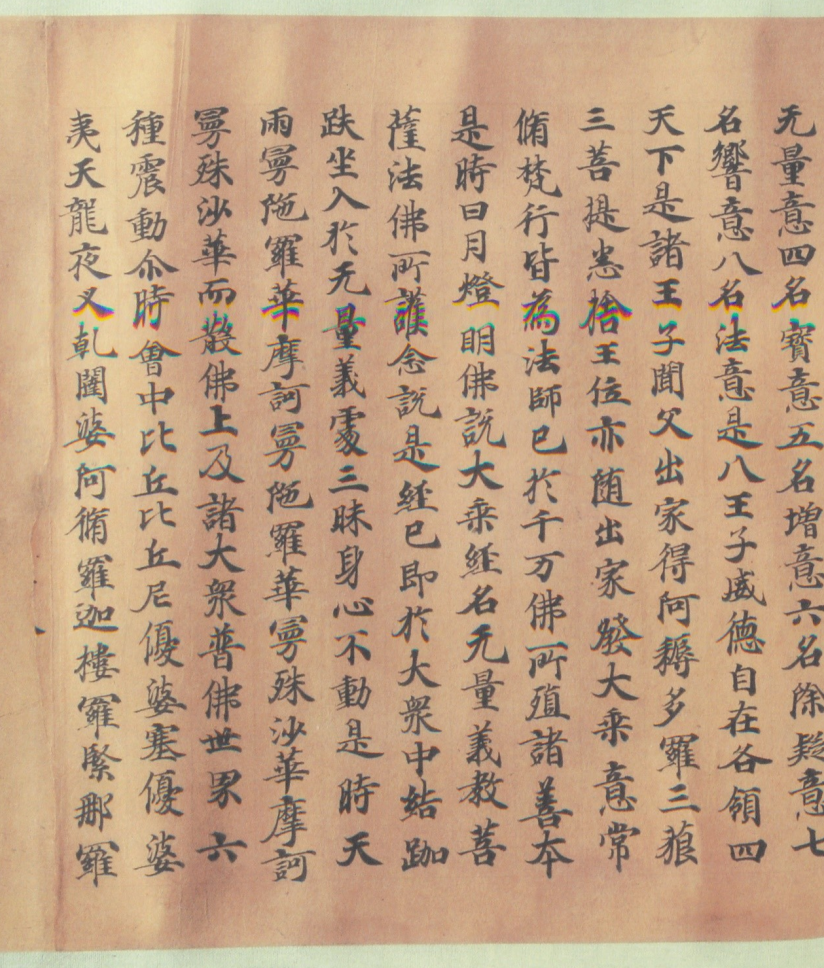 无量意四名寳意五名增意六名除疑意七
名響意八名法意是八王子威德自在各領四
天下是諸王子聞父出家得阿耨多羅三藐
三菩提悉捨王位亦随出家發大乘意常
脩梵行皆為法師已於千万佛所殖諸善本
是時日月燈明佛說大乘經名无量義教菩
薩法佛所護念說是經已即於大衆中結跏
趺坐入於无量義處三昧身心不動是時天
雨曼陁羅華摩訶曼陁羅華曼殊沙華摩訶
曼殊沙華而散佛上及諸大衆普佛世界六
種震動尒時會中比丘比丘尼優婆塞優婆
夷天龍夜叉乹闥婆阿脩羅迦樓羅緊那羅